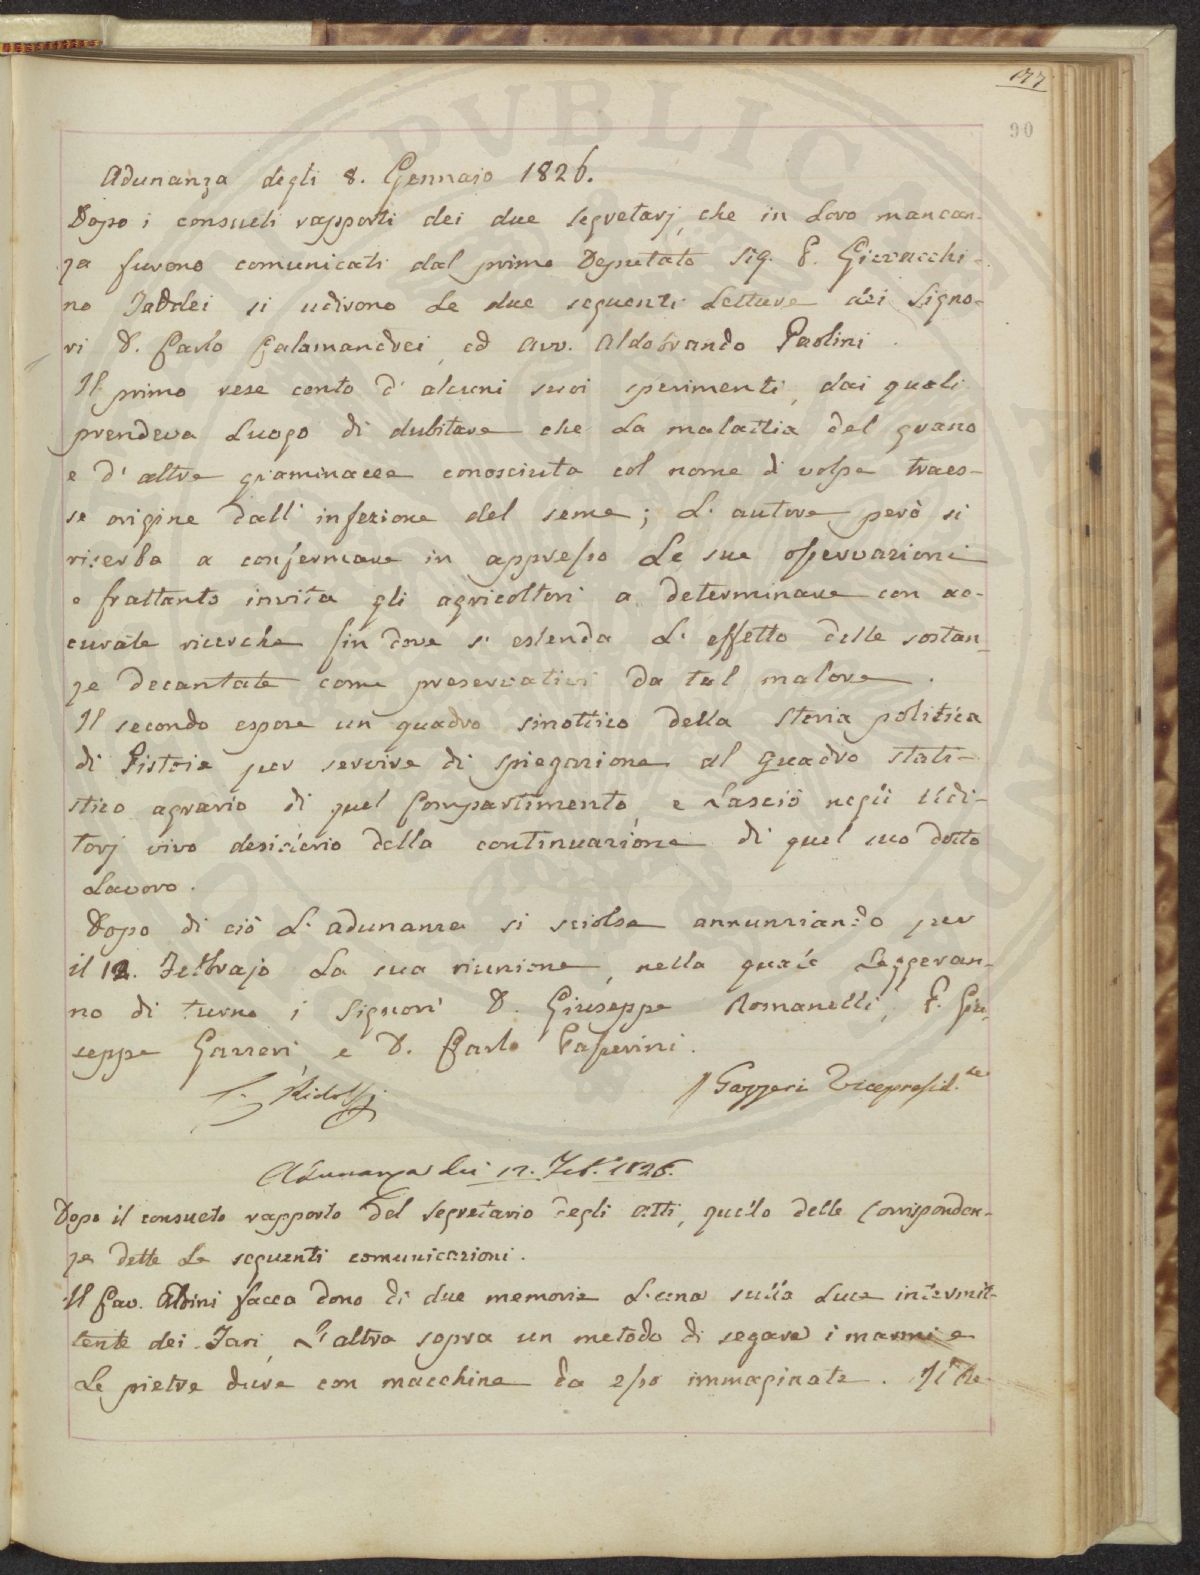 177
90
Adunanza degli 8. Gennajo 1826.
Dopo i consueti rapporti dei due segretarj, che in Loro mancan-
za furono comunicati dal primo Deputato Sig. P. Giovacchi-
no Taddei si udirono Le due seguenti Letture dei Signo-
ri D. Carlo Calamandrei, ed Avv. Aldobrando Paolini.
Il primo rese conto d'alcuni suoi sperimenti, dai quali
prendeva Luogo di dubitare che La malattia del grano
e d'altre graminacee conosciuta col nome di volpe traes-
se origine dall'infezione del seme; L'autore però si
riserba a confermare in appresso Le sue osservazioni
e frattanto invita gli agricoltori a determinare con ac-
curate ricerche fin dove s'estenda L'effetto delle sostan-
ze decantate come preservativi da tal malore.
Il secondo espose un quadro sinottico della storia politica
di Pistoia per servire di spiegazione al Quadro stati-
stico agrario di quel Compartimento, e Lasciò negli Udi-
torj vivo desiderio della continuazione di quel suo dotto
Lavoro.
Dopo di ciò L'adunanza si sciolse annunziando per
il 12. Febbrajo La sua riunione, nella quale Leggeran-
no di turno i Signori D. Giuseppe Romanelli, P. Giu-
seppe Gazzeri e D. Carlo Passerini.
C. Ridolfi
G Gazzeri Vicepresid.te
Adunanza dei 12. Feb.o 1826.
Dopo il consueto rapporto del segretario degli atti, quello delle Corrisponden-
ze dette Le seguenti comunicazioni.
Il Cav. Aldini facea dono di due memorie L'una sulla Luce intermit-
tente dei Fari, L'altra sopra un metodo di segare i marmi e
Le pietre dure con macchine da esso immaginate. Il Re-